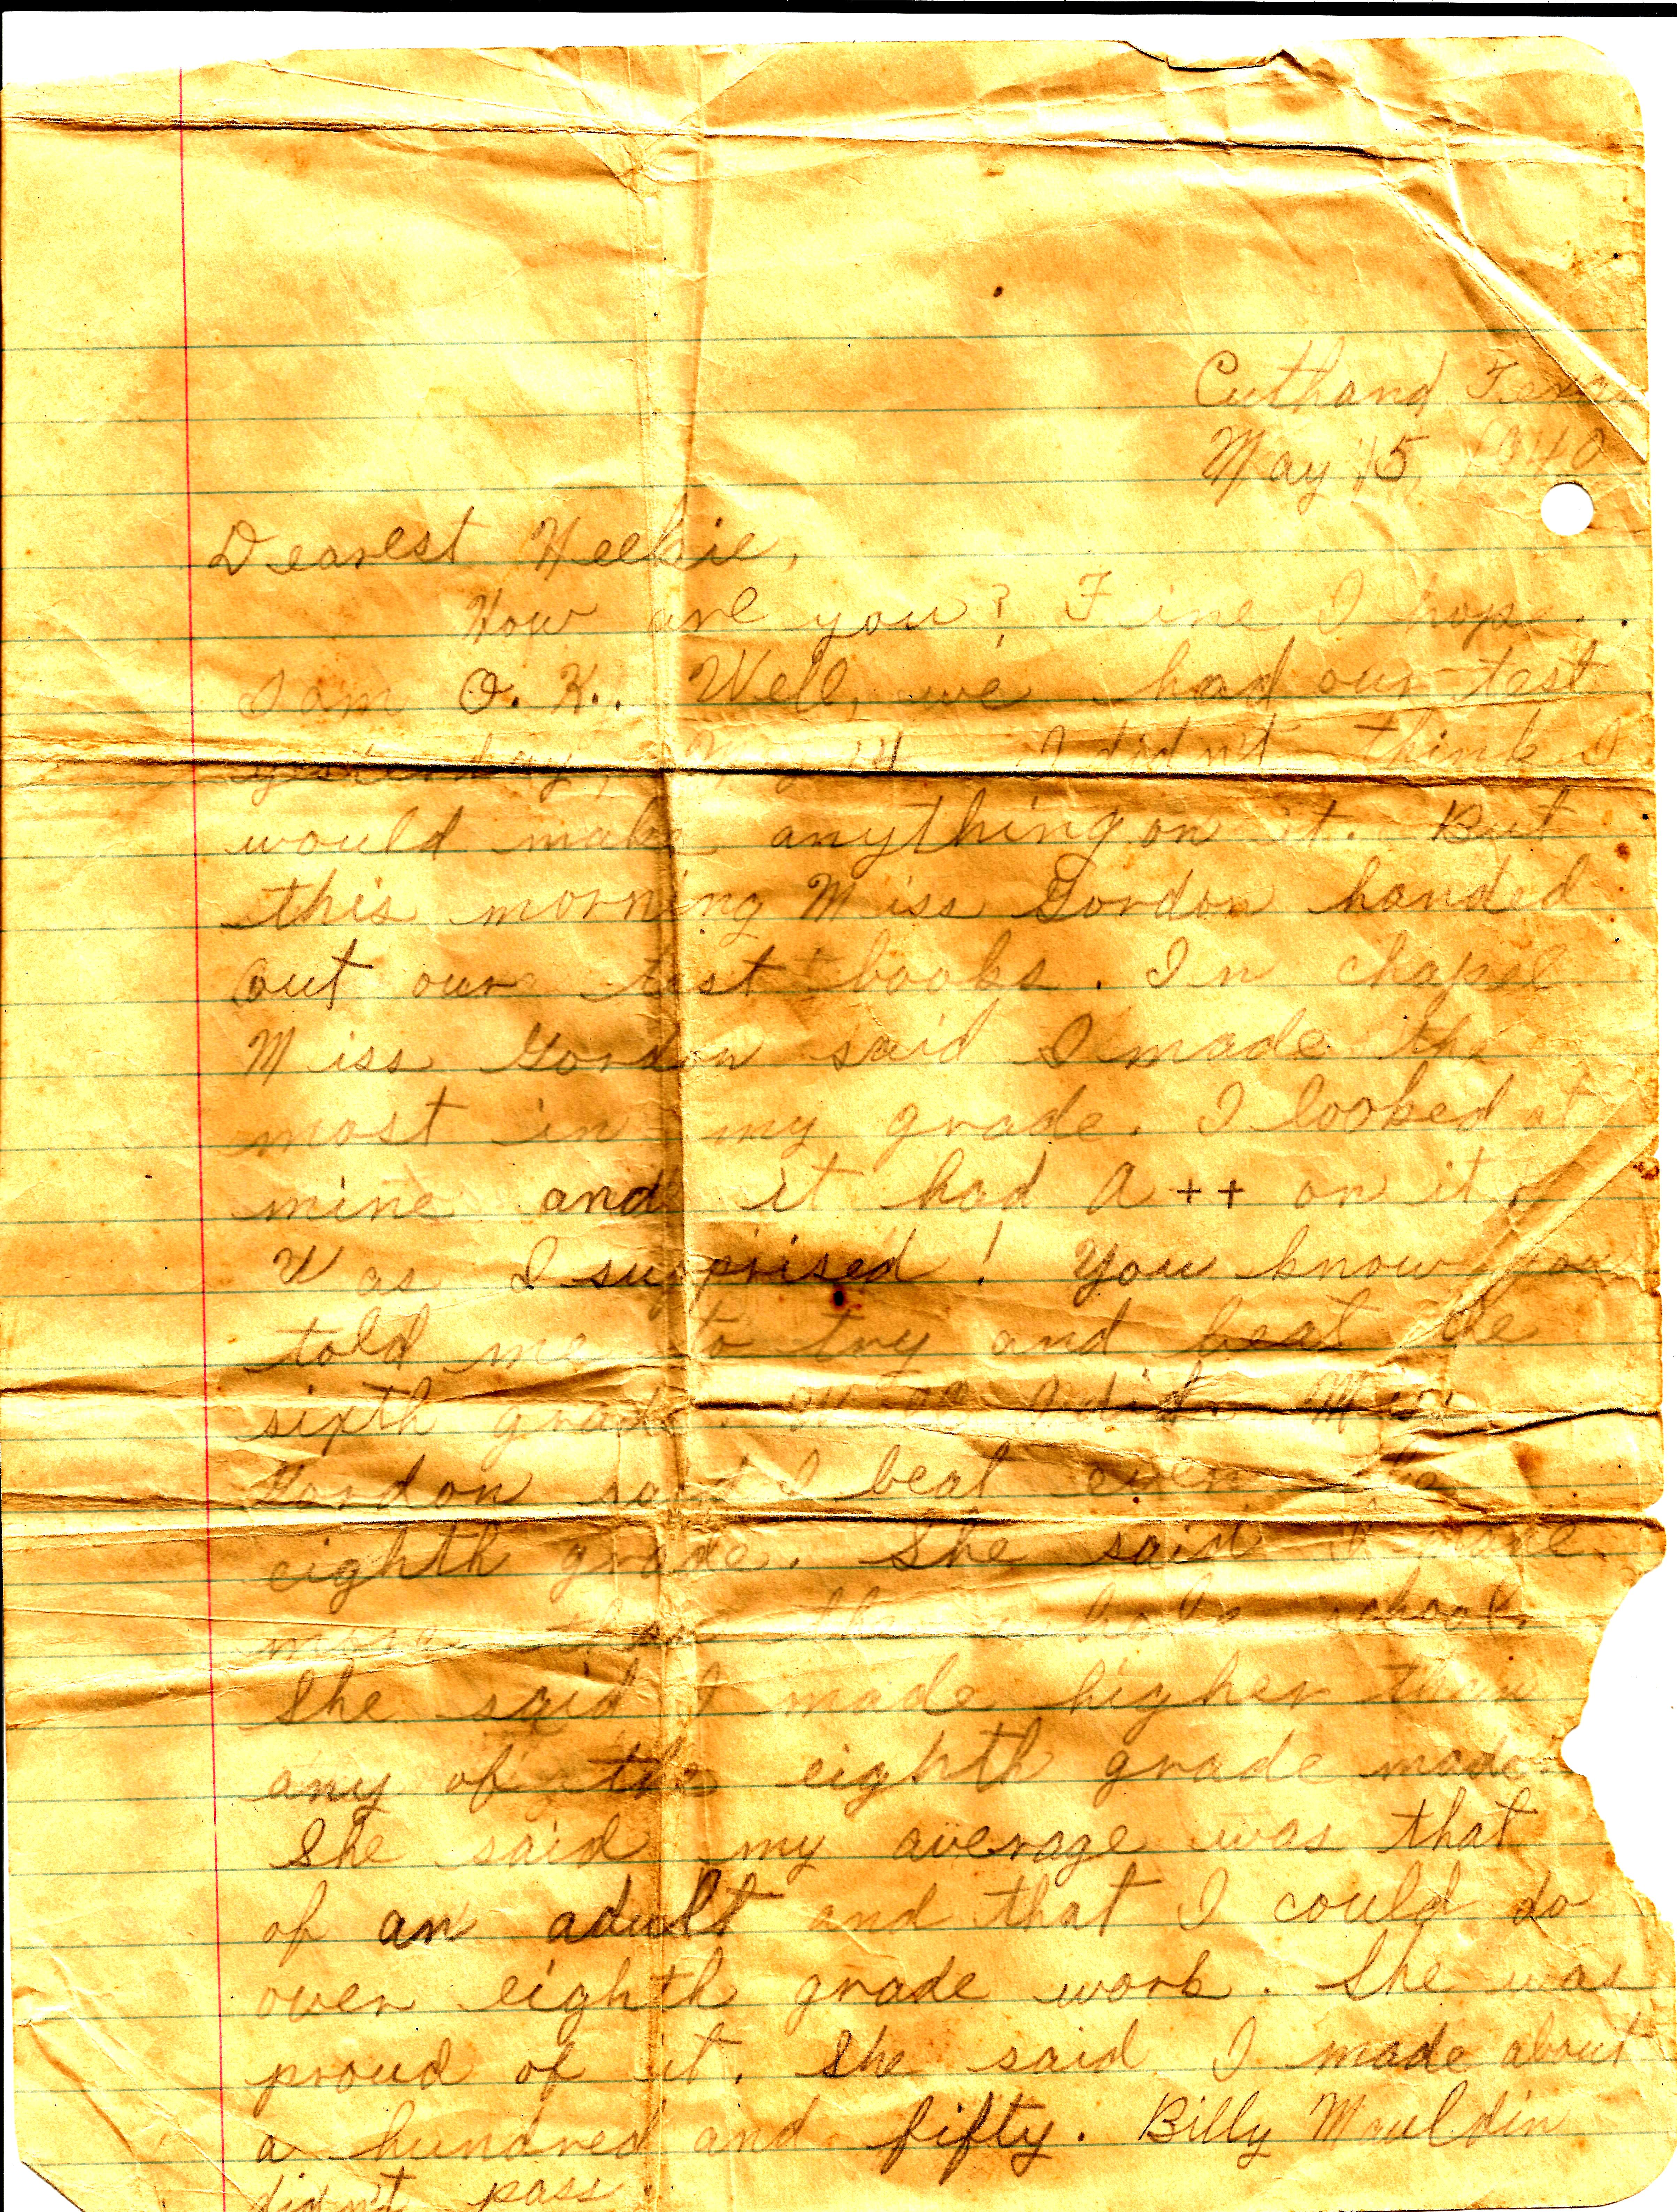 Cuthand Texas
May 15, 1940
Dearest
How are you? Fine I hope.
I am O. K.. Well, we had our test
yesterday, May 14 I didn't think I
would make anything on it. But
this morning Miss Gordon handed
out our test books. In chapel
Miss Gordon said I made the
most in my grade. I looked at
mine and it had A++ on it.
Was I surprised! You know you
told me to try and beat the
sixth grade. Well I did. Miss
Gordon said I beat even the
eighth grade. She said I made
more than the whole school.
She said I made higher than
any of the eighth grade made.
She said my average was that
of an adult and that I could do
over eighth grade work. She was
proud of it. She said I made about
a hundred and fifty. Billy Mauldin
didn't pass.